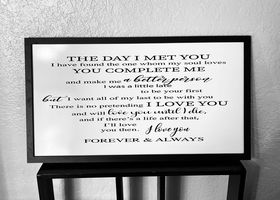 THE DAY I MET YOU
I have found the one whom my soul loves
YOU COMPLETE ME
and make me a better person
I was a little late
to be your first
but I want all of my last to be with you
There is no pretending I LOVE YOU
and will love you until I die,
and if there's a life after that,
I'll love
you then. I love you
FOREVER & ALWAYS